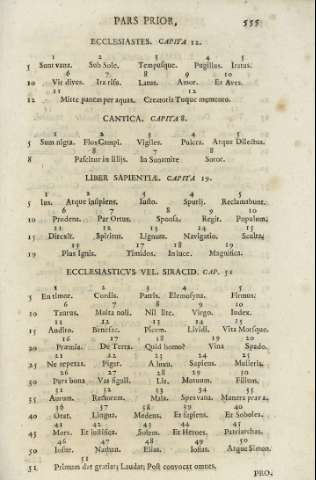 PARS PRIOR, 555
ECCLESIASTES. CAPITA 12.
1 2 3 4 5
5 Sunt vana. Sub Sole. Tempusque. Pugillus. Iratus.
6 7 8 9 10
10 Vir dives. Ira risu. Latus. Amor. Et Aves.
11 12
12 Mitte panem per aquas. Creatoris Tuque memento.
CANTICA. CAPITA 8.
1 2 3 4 5
5 Sum nigra. Flos Campi. Vigiles. Pulcra. Atque Dilectus.
6 8
8 Pascitur in lilijs. In Sunamite Soror.
LIBER SAPIENTIÆ. CAPITA 19.
1 2 3 4 5
5 Ius. Atque insipiens. Iusto. Spurij. Reclamabunt.
6 7 8 9 10
10 Prudens. Par Ortus. Sponsa. Regit. Populum.
11 12 13 14 15
15 Dispulit. Spiritus. Lignum. Navigatio. Sculta,
16 17 18 19
19 Plus Ignis. Timidos. In luce. Magnifica.
ECCLESIASTICVS VEL. SIRACID. CAP. 51
1 2 3 4 5
5 En timor. Cordis. Patris. Elemosyna. Firmus.
6 7 8 9 10
10 Taurus. Multa noli. Nil lite. Virgo. Iudex.
11 12 13 14 15
15 Audito. Benefac. Picem. Lividi. Vita Morsque.
16 17 18 19
20 Præmia. De Terra. Quid homo? Vina Spado.
21 22 23 24 25
25 Ne repetas. Piger. A luxu. Sapiens. Mulieris.
26 27 28 29 30
30 Pars bona Vas figuli. Lis. Mutuum. Filium.
35 Aurum. Rectorem. Mala. Spes vana. Munera prava,
36 37 38 39 40
40 Orat. Lingua. Medens. Et Sapiens. Et Soboles.
41 42 43 44 45
45 Mors. Et iustifica. Solem. Et Heroes. Patriarchas.
46 47 48 49 50
50 Iosue. Nathan. Elias. Iosias. Atque Simon.
51
51. Primum dat gratias; Laudat; Post convocat omnes.
PRO.